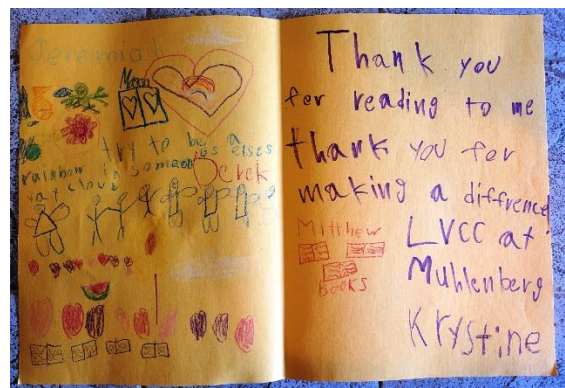 Jeremiah
Moon
try to be a
rainbow in someones elses
Derek
cloud
Thank you
for reading to me
thank you for
making a diffrence
Matthew
BOOKS
LVCC at
Muhlenberg
Krystine